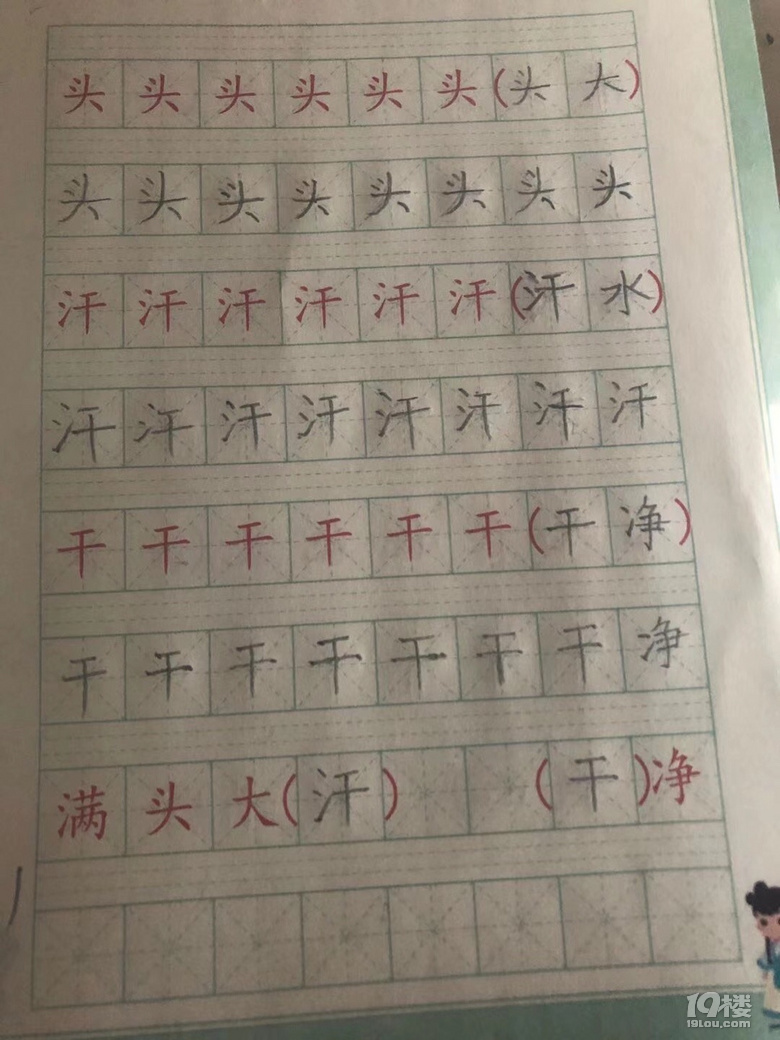 头头头头头头(头大)
头头头头头头头头
汗汗汗汗汗汗(汗水)
汗汗汗汗汗汗汗汗
干干干干干干(干净)
干干干干干干干净
满头大(汗) (干)净
19楼
19lou.com